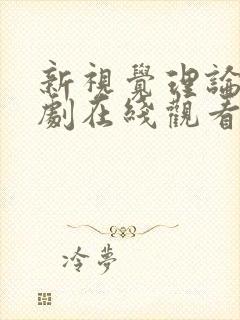 新視覺理論
劇在綫觀看
冷夢